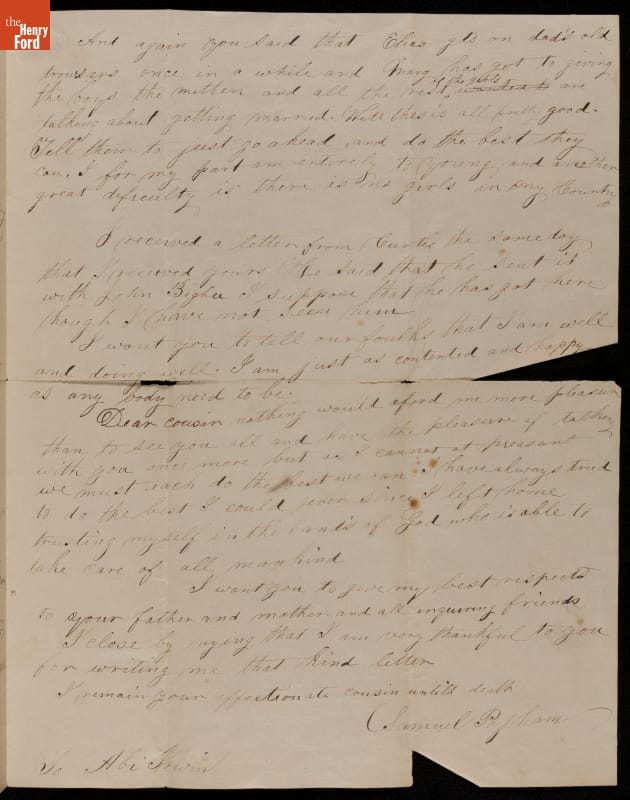 the
Henry
Ford
And again you said that Elias gts on dad's old
trousers once in a while and Marg has got to giving
the boys the mitten and all the rest of the girls wanted to are
talking about getting married. Well thes is all pretty good.
Tell them to just go ahead and do the best they
can, I for my part am entirely to young and another
great dificulty is there is no girls in my Country
I received a letter from Curtis the same day
that I received yours He said that he sent it
with John Bigbee I suppose that he has got here
though I have not seen him
I want you to tell our foulks that I am well
and doing well. I am just as contented and happy
as any body need to be.
Dear cousin nothing would aford me more pleasure
than to see you all and have the pleasure of talking
with you once more but as I cannot at preasant
we must each do the best we can I have always tried
to do the best I could ever since I left home
trusting myself in the hands of God who is able to
take care of all mankind
I want you to give my best respects
to your father and mother and all inquiring friends
I close by saying that I am very thankful to you
for writing me that kind letter
I remain your affectionate cousin untill death
Samuel
To Abi Irwin